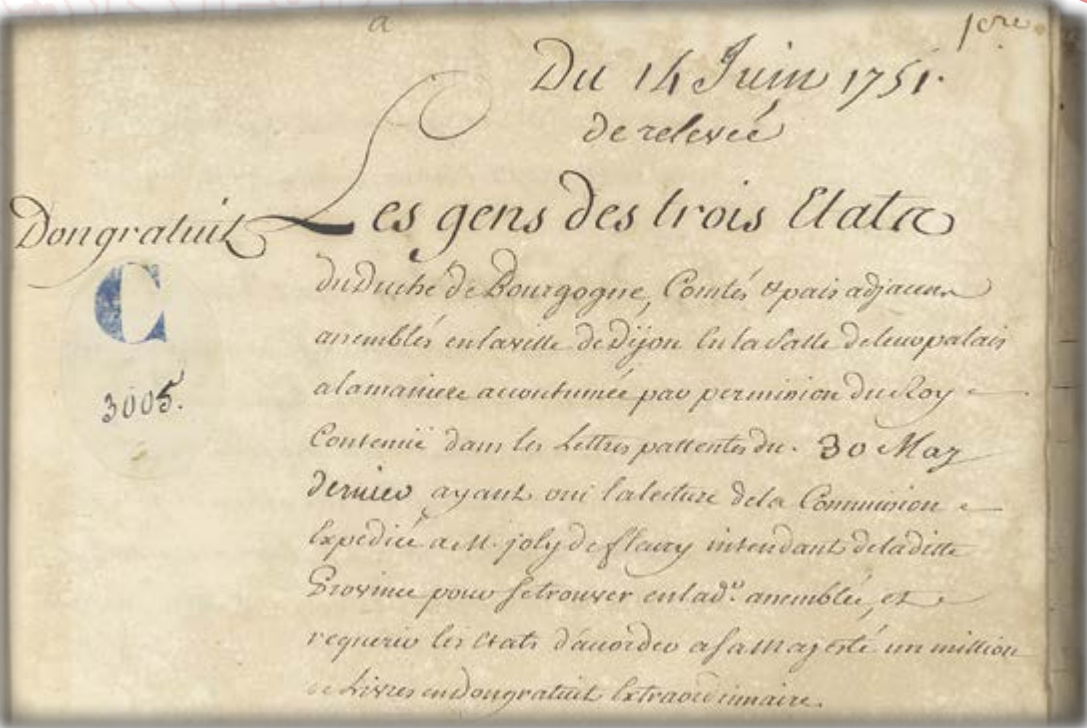 1ere
Du 14 Juin 1751.
de relevée
Dongratuit
Les gens des trois Etats
du Duché de Bourgogne, Comtés & pais adjacens
assemblés en la ville de Dijon En la Salle de leur palais
a la maniere accoutumée par permission du Roy
Contenuë dans les Lettres pattentes du 30 May
dernier ayant oui la lecture de la Commission
Expediée a M. joly de fleury intendant de la ditte
Province pour se trouver en lad.e assemblée, et
requerir les Etats d'accorder a sa Majesté un million
de Livres en Dongratuit Extraordinaire.
C
3005.